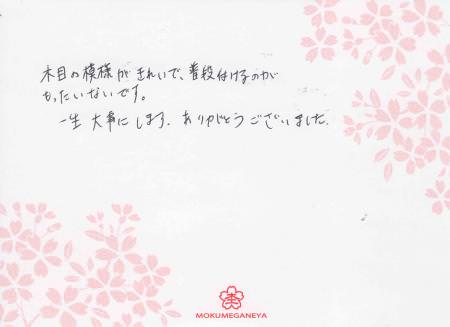 木目の模様がきれいで、普段付けるのが
もったいないです。
一生大事にします。ありがとうございました。
MOKUMEGANEYA